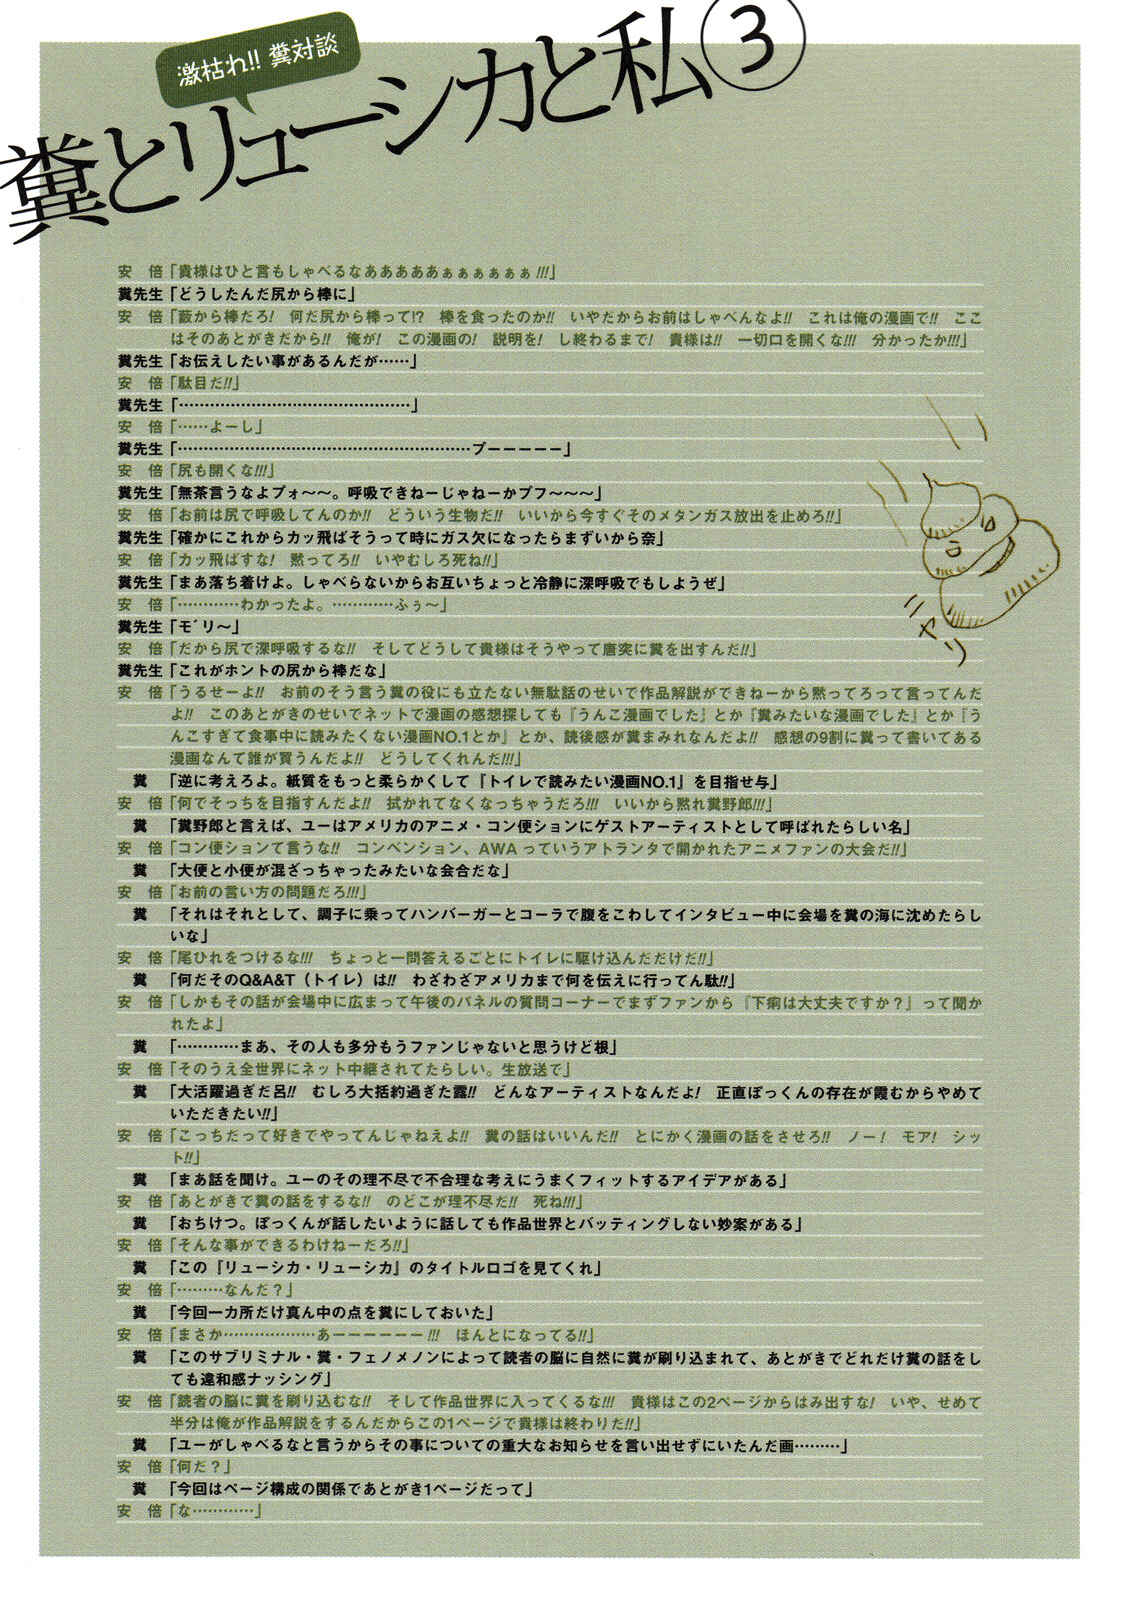 激枯れ!! 糞対談
糞とリューシカと私③
安　倍「貴様はひと言もしゃべるなあああああぁぁぁぁぁぁ!!!」
糞先生「どうしたんだ尻から棒に」
安　倍「藪から棒だろ!　何だ尻から棒って!?　棒を食ったのか!!　いやだからお前はしゃべんなよ!!　これは俺の漫画で!!　ここ
はそのあとがきだから!!　俺が!　この漫画の!　説明を!　し終わるまで!　貴様は!!　一切口を開くな!!!　分かったか!!!」
糞先生「お伝えしたい事があるんだが……」
安　倍「駄目だ!!」
糞先生「………………………………………」
安　倍「……よーし」
糞先生「…………………………………………………ブーーーーー」
安　倍「尻も開くな!!!」
糞先生「無茶言うなよブォ〜〜。呼吸できねーじゃねーかブフ〜〜〜」
安　倍「お前は尻で呼吸してんのか!!　どういう生物だ!!　いいから今すぐそのメタンガス放出を止めろ!!」
糞先生「確かにこれからカッ飛ばそうって時にガス欠になったらまずいから奈」
安　倍「カッ飛ばすな!　黙ってろ!!　いやむしろ死ね!!」
糞先生「まあ落ち着けよ。しゃべらないからお互いちょっと冷静に深呼吸でもしようぜ」
安　倍「…………わかったよ。…………ふぅ〜」
糞先生「モ゛リ〜」
安　倍「だから尻で深呼吸するな!!　そしてどうして貴様はそうやって唐突に糞を出すんだ!!」
糞先生「これがホントの尻から棒だな」
安　倍「うるせーよ!!　お前のそう言う糞の役にも立たない無駄話のせいで作品解説ができねーから黙ってろって言ってんだ
よ!!　このあとがきのせいでネットで漫画の感想探しても『うんこ漫画でした』とか『糞みたいな漫画でした』とか『う
んこすぎて食事中に読みたくない漫画NO.1とか』とか、読後感が糞まみれなんだよ!!　感想の9割に糞って書いてある
漫画なんて誰が買うんだよ!!　どうしてくれんだ!!!」
糞　「逆に考えろよ。紙質をもっと柔らかくして『トイレで読みたい漫画NO.1』を目指せ与」
安　倍「何でそっちを目指すんだよ!!　拭かれてなくなっちゃうだろ!!!　いいから黙れ糞野郎!!!」
糞　「糞野郎と言えば、ユーはアメリカのアニメ・コン便ションにゲストアーティストとして呼ばれたらしい名」
安　倍「コン便ションて言うな!!　コンベンション、AWA っていうアトランタで開かれたアニメファンの大会だ!!」
糞　「大便と小便が混ざっちゃったみたいな会合だな」
安　倍「お前の言い方の問題だろ!!!」
糞　「それはそれとして、調子に乗ってハンバーガーとコーラで腹をこわしてインタビュー中に会場を糞の海に沈めたらし
いな」
安　倍「尾ひれをつけるな!!!　ちょっと一問答えるごとにトイレに駆け込んだだけだ!!」
糞　「何だそのQ&A&T（トイレ）は!!　わざわざアメリカまで何を伝えに行ってん駄!!」
安　倍「しかもその話が会場中に広まって午後のパネルの質問コーナーでまずファンから『下痢は大丈夫ですか？』って聞か
れたよ」
糞　「…………まあ、その人も多分もうファンじゃないと思うけど根」
安　倍「そのうえ全世界にネット中継されてたらしい。生放送で」
糞　「大活躍過ぎだ呂!!　むしろ大括約過ぎた露!!　どんなアーティストなんだよ!　正直ぼっくんの存在が霞むからやめて
いただきたい!!」
安　倍「こっちだって好きでやってんじゃねえよ!!　糞の話はいいんだ!!　とにかく漫画の話をさせろ!!　ノー!　モア!　シッ
ト!!」
糞　「まあ話を聞け。ユーのその理不尽で不合理な考えにうまくフィットするアイデアがある」
安　倍「あとがきで糞の話をするな!!　のどこが理不尽だ!!　死ね!!!」
糞　「おちけつ。ぼっくんが話したいように話しても作品世界とバッティングしない妙案がある」
安　倍「そんな事ができるわけねーだろ!!」
糞　「この『リューシカ・リューシカ』のタイトルロゴを見てくれ」
安　倍「………なんだ？」
糞　「今回一カ所だけ真ん中の点を糞にしておいた」
安　倍「まさか………………あーーーーーー!!!　ほんとになってる!!」
糞　「このサブリミナル・糞・フェノメノンによって読者の脳に自然に糞が刷り込まれて、あとがきでどれだけ糞の話をし
ても違和感ナッシング」
安　倍「読者の脳に糞を刷り込むな!!　そして作品世界に入ってくるな!!!　貴様はこの2ページからはみ出すな!　いや、せめて
半分は俺が作品解説をするんだからこの1ページで貴様は終わりだ!!」
糞　「ユーがしゃべるなと言うからその事についての重大なお知らせを言い出せずにいたんだ画………」
安　倍「何だ？」
糞　「今回はページ構成の関係であとがき1ページだって」
安　倍「な…………」
ニヤリ